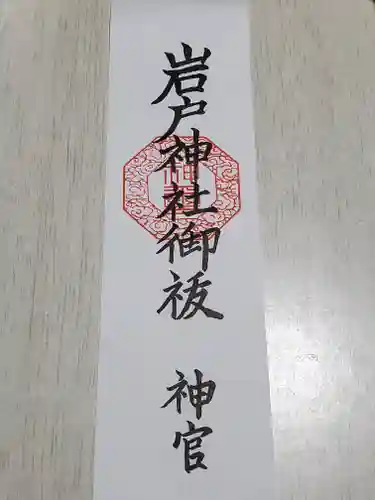 岩戸神社御祓
神官